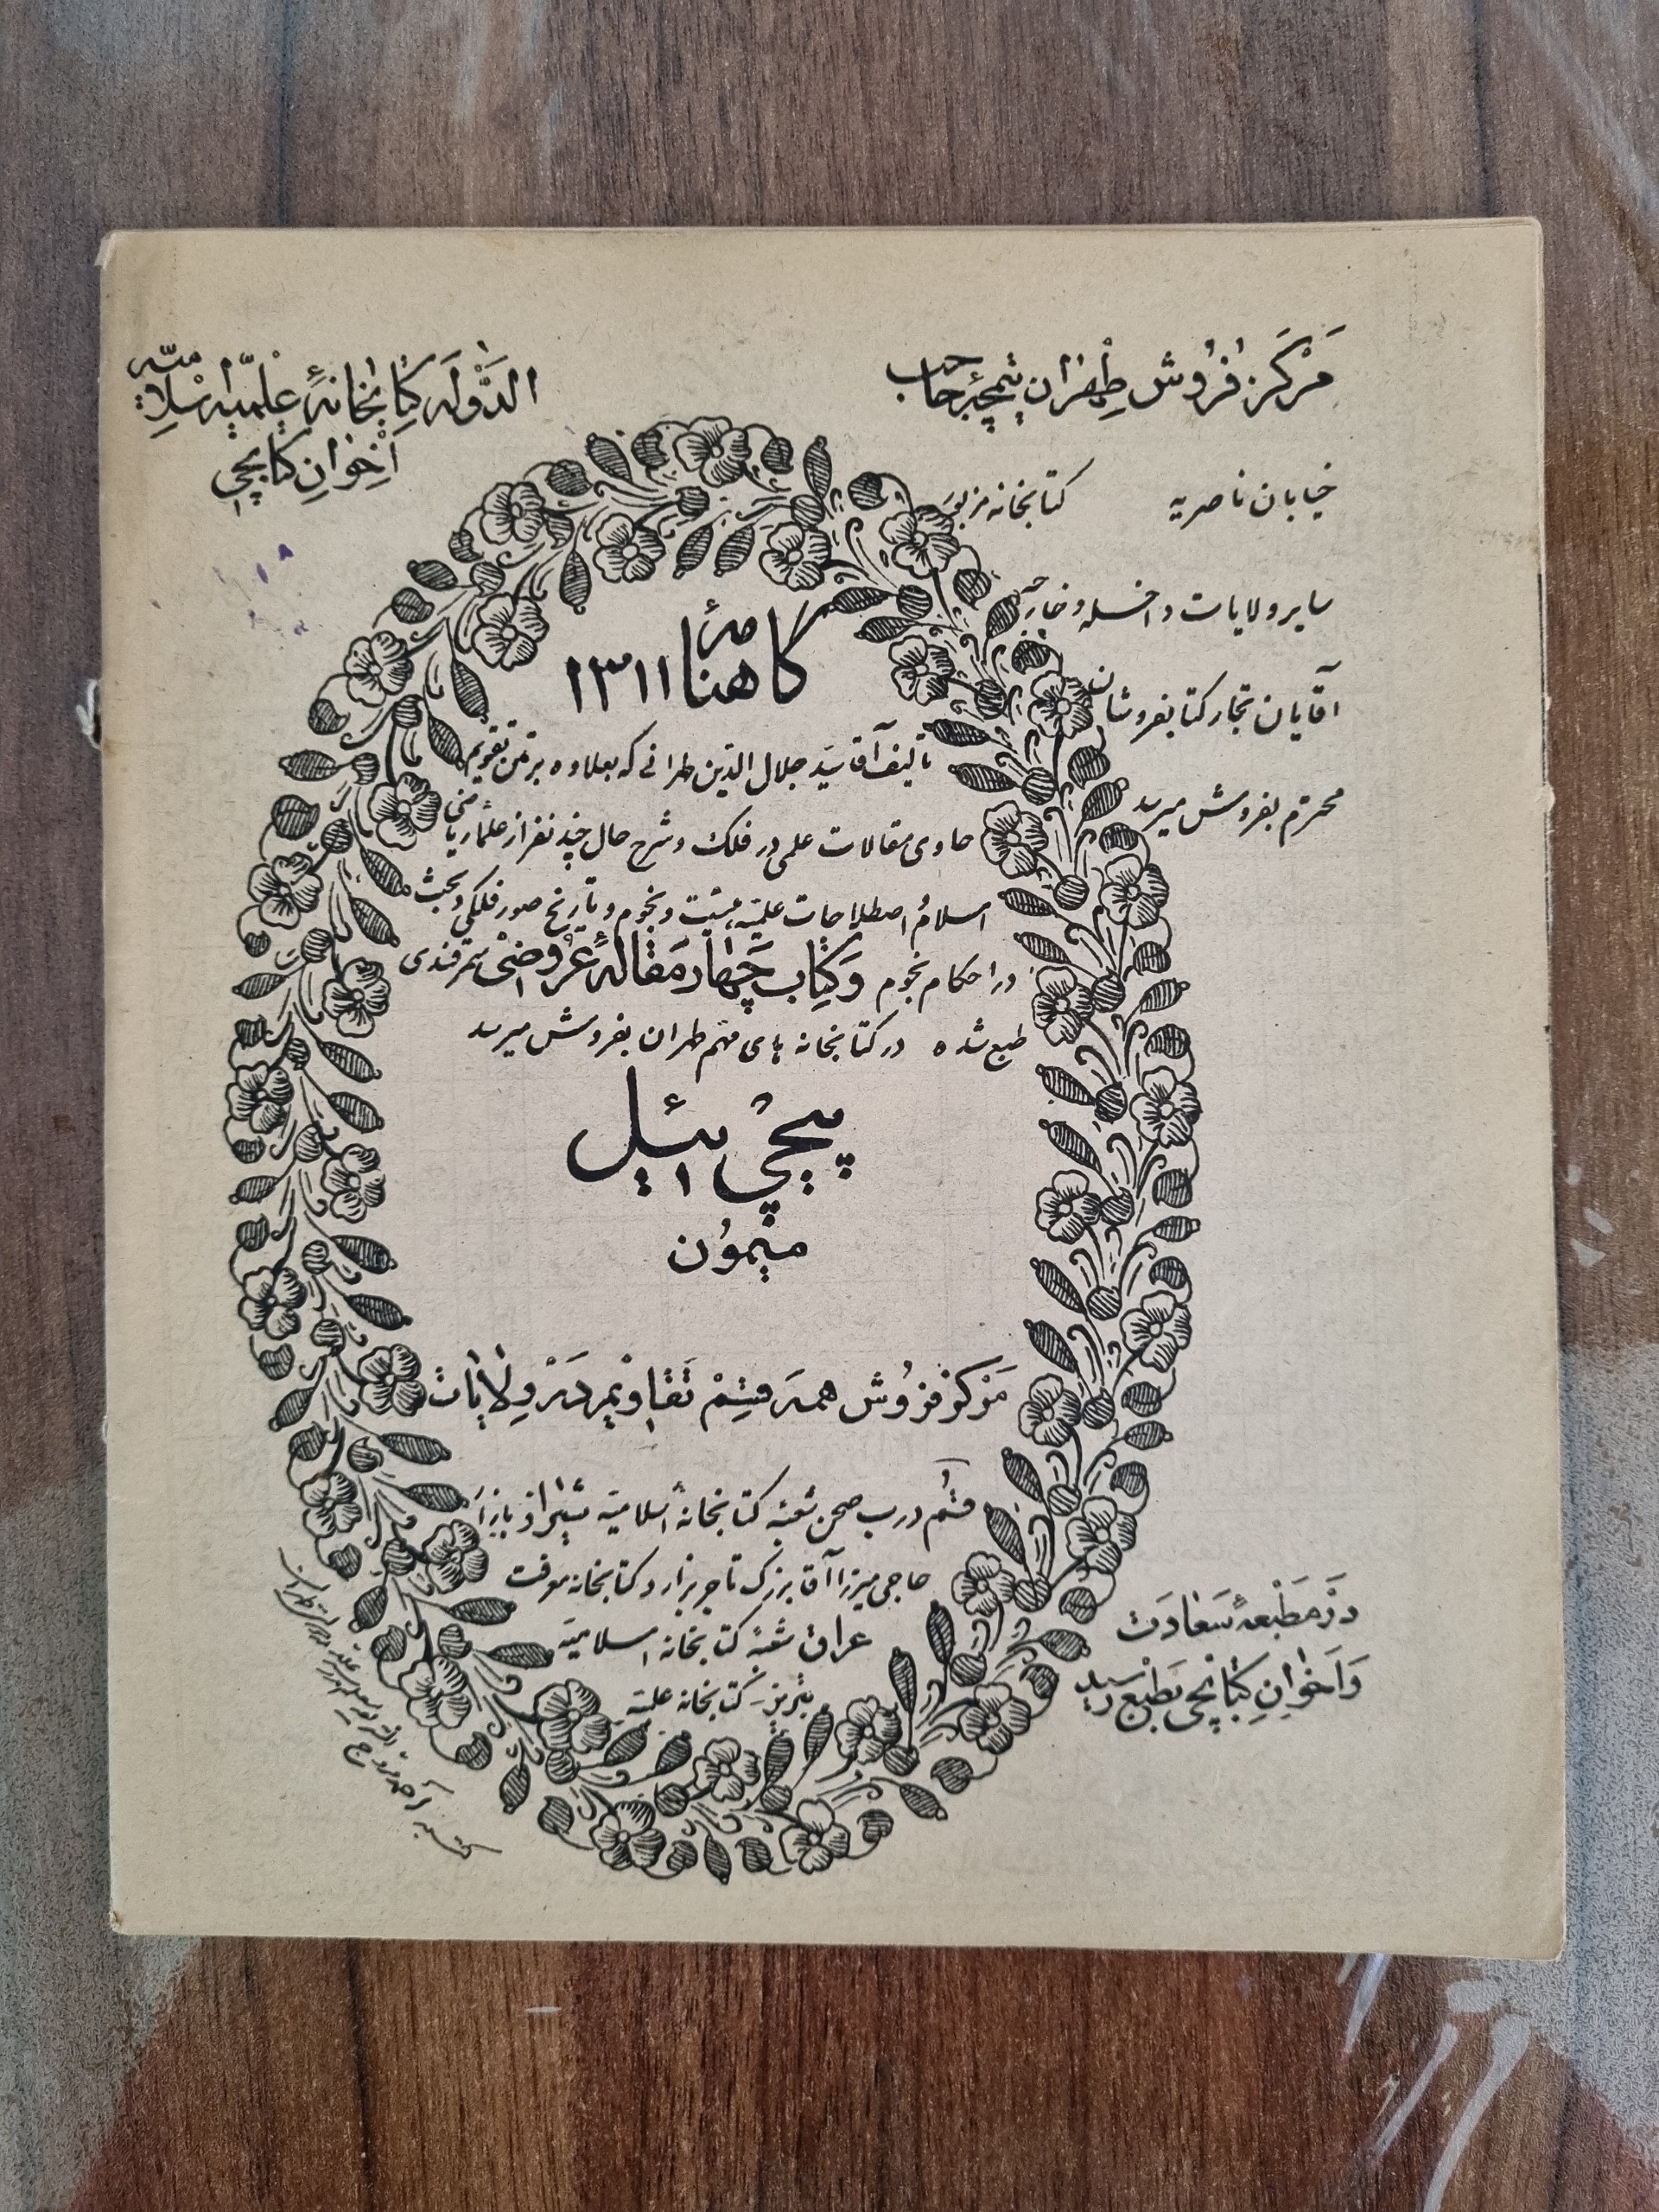 مرکز فروش طهران تیمچهٔ حاجب
الدّوله کتابخانهٔ علمیّه اسلامیّه
اخوان کتابچی
خیابان ناصریه کتابخانه مزبور
سایر ولایات داخله و خارجه
آقایان تجار کتابفروشان
محترم بفروش میرسد
گاهنامهٔ ۱۳۱۱
تالیف آقا سیّد جلال الدین طهرانی که بعلاوه بر متن تقویم
حاوی مقالات علمی در فلک و شرح حال چند نفر از علماء ریاضی
اسلام و اصطلاحات علمیّه هیئت و نجوم و تاریخ صور فلکی و بحث
در احکام نجوم و کتاب چهار مقالهٔ عروضی سمرقندی
طبع شده در کتابخانه های مهم طهران بفروش میرسد
پیچی ئیل
میمون
مرکز فروش همه قسم تقاویم در ولایات
قم درب صحن شعبه کتابخانهٔ اسلامیّه شیراز بازار
حاجی میرزا آقا بزرگ تاجر بزاز و کتابخانه معرفت
عراق شعبهٔ کتابخانه اسلامیّه
تبریز کتابخانه علمیّه
در مطبعهٔ سعادت
و اخوان کتابچی بطبع رسید